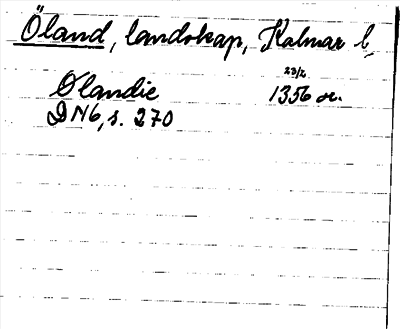 Öland, landskap, Kalmar l.
23/2
Ølandie 1356 or.
DN6, s. 270